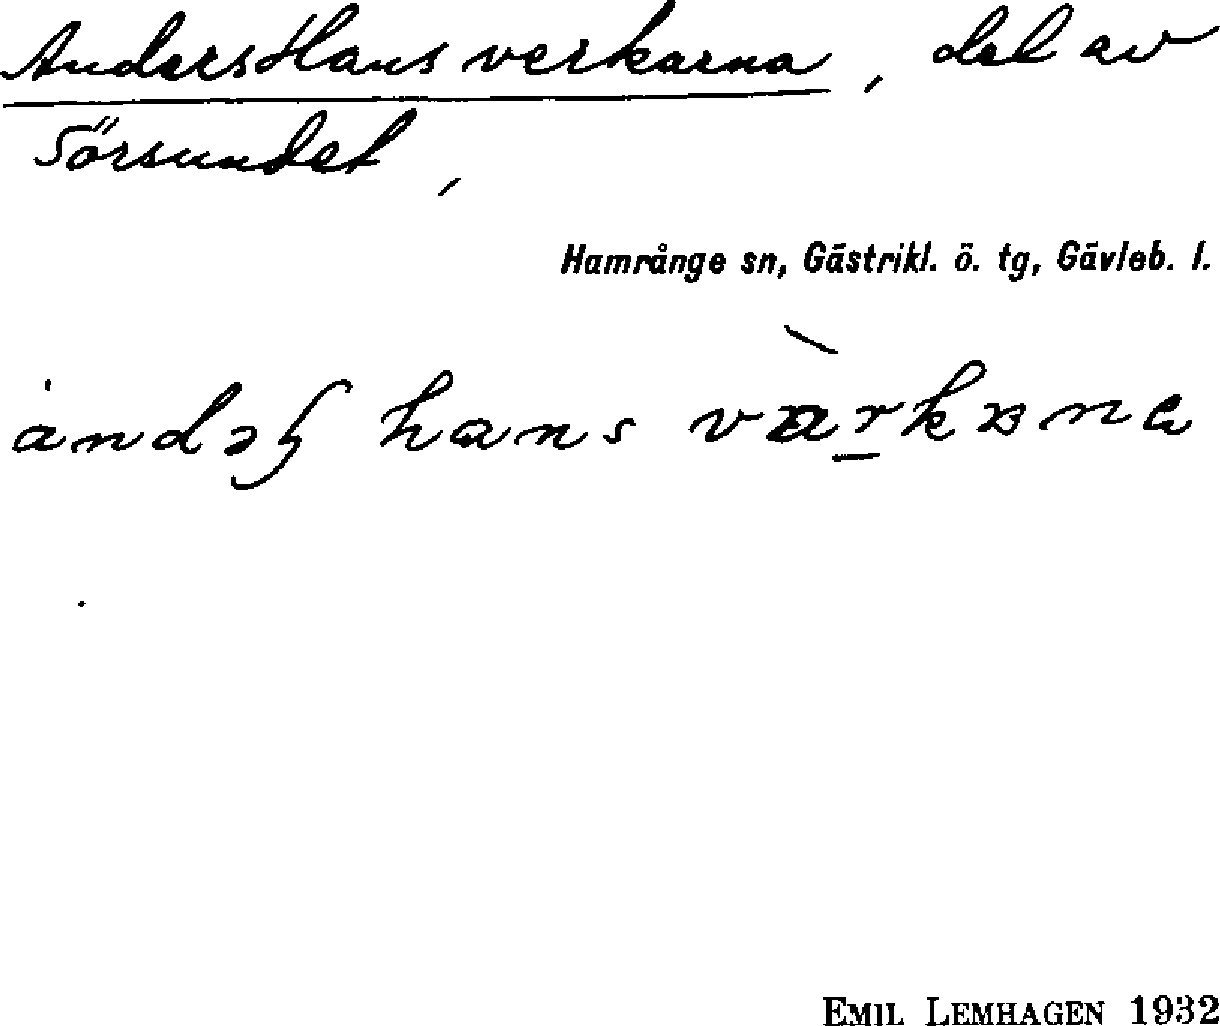 Anders Hansverkarna, del av
Sörsundet,
Hamrånge sn, Gästrikl. ö. tg, Gävleb. l.
hans
EMIL LEMHAGEN 1932